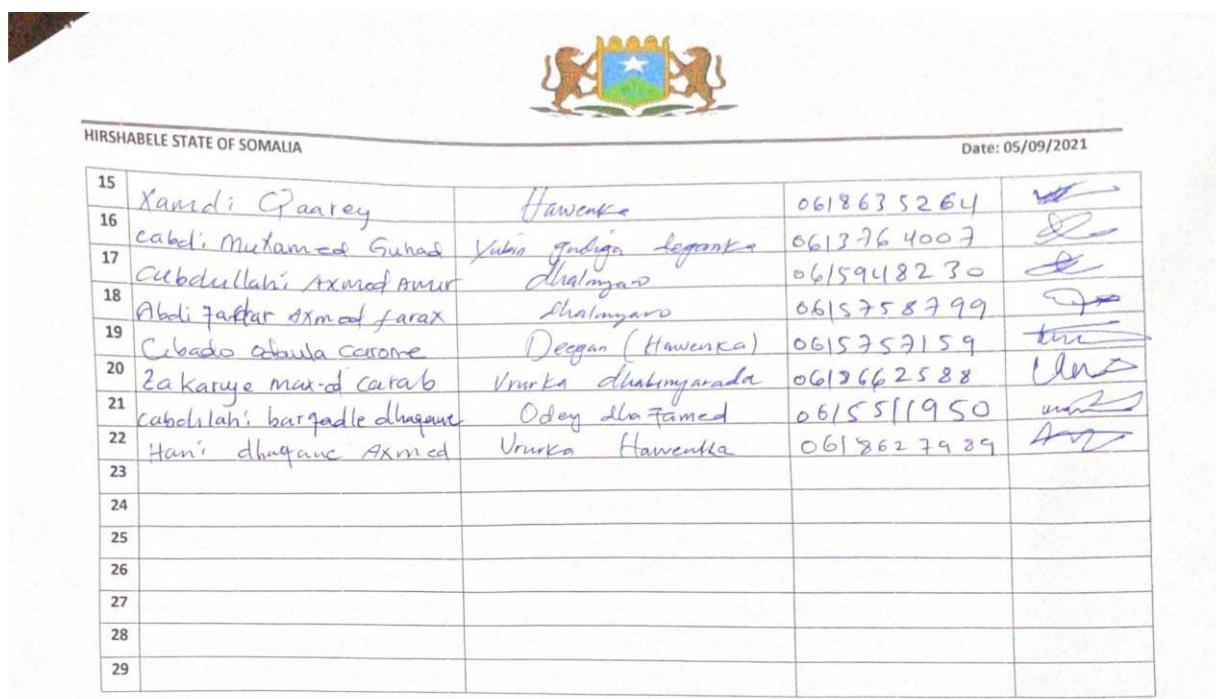 HIRSHABELE STATE OF SOMALIA
Date: 05/09/2021
15 Xamdi Qaarey Hawenka 0618635264
16 cabdi Muxamed Guhad Yubin gudiga deganka 0613764007
17 Cubdullahi Axmed Amur dhalinyaro 0615948230
18 Abdi Jaftar Axmed farax dhalinyaro 0615758799
19 Cibado Deegan (Hawenka) 0615757159
20 Zakariye carab Vrurka dhalinyarada 0618662588
21 cabdilahi dhaqane Odey dhaqamed 0615511950
22 Hani dhaqane Axmed Vrurka Hawenka 0618627989
23
24
25
26
27
28
29